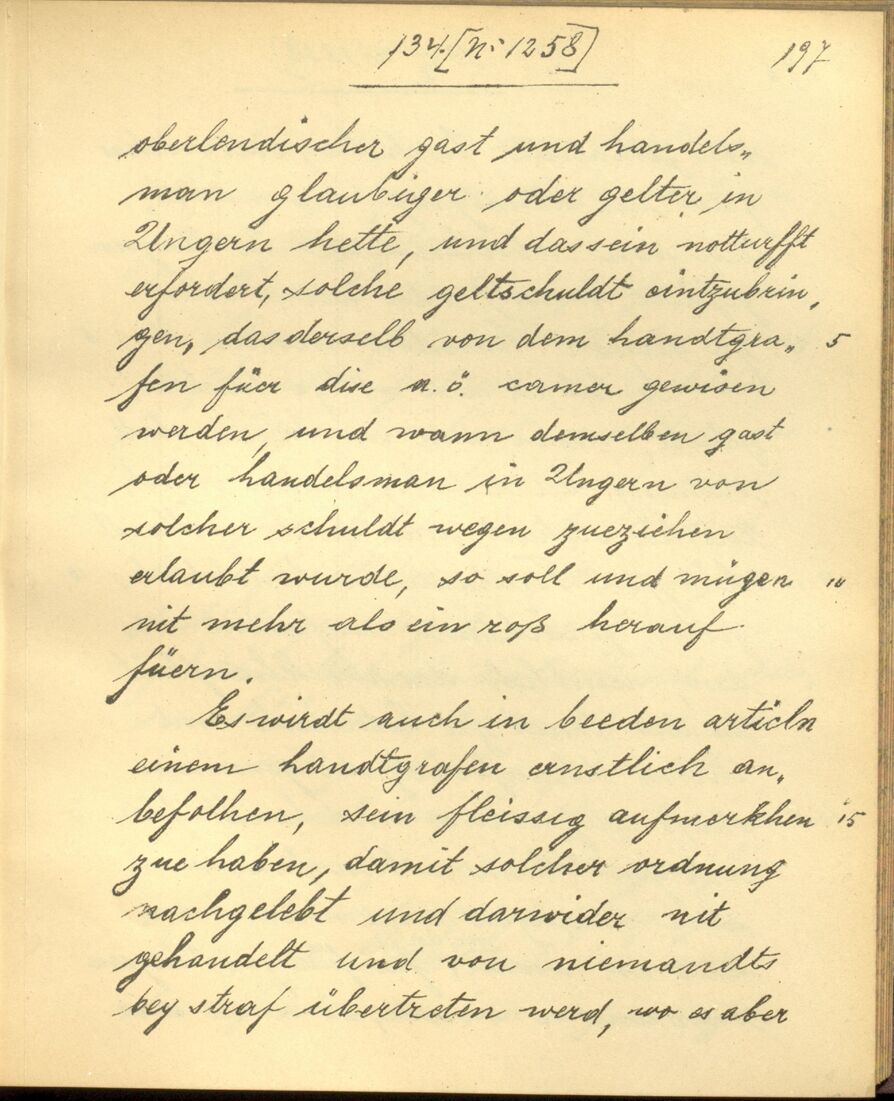 134. [No 1258] 197
oberlendischer gast und handels„
man glaubiger oder gelter in
Ungern hette, und das sein notturfft
erfordert, solche geltschuldt eintzubrin„
gen, das derselb von dem handtgra„ 5
fen füer dise n. ö. camer gewisen
werden, und wann demselben gast
oder handelsman in Ungern von
solcher schuldt wegen zueziehen
erlaubt wurde, so soll und mügen 10
nit mehr als ein roß herauf
füern.
Es wirdt auch in beeden articln
einem handtgrafen ernstlich an„
befolhen, sein fleissig aufmerkhen 15
zue haben, damit solcher ordnung
nachgelebt und darwider nit
gehandelt und von niemandts
bey straf übertreten werd, wo es aber